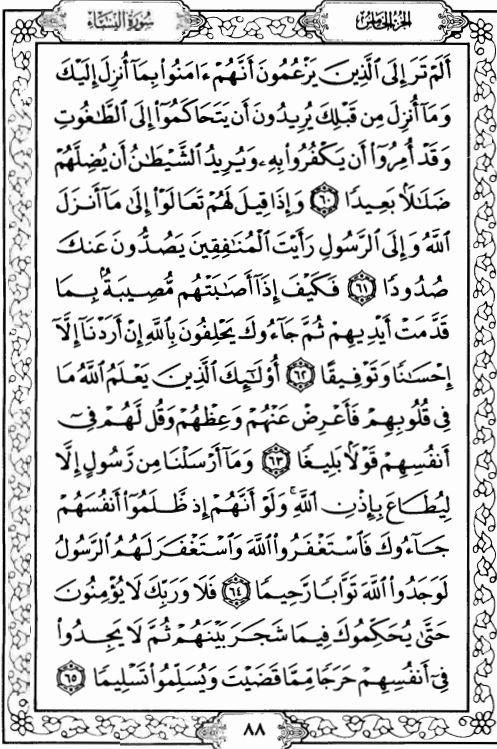 الجزء الخامس
سورة النساء
أَلَمْ تَرَ إِلَى ٱلَّذِينَ يَزْعُمُونَ أَنَّهُمْ ءَامَنُوا۟ بِمَآ أُنزِلَ إِلَيْكَ
وَمَآ أُنزِلَ مِن قَبْلِكَ يُرِيدُونَ أَن يَتَحَاكَمُوٓا۟ إِلَى ٱلطَّٰغُوتِ
وَقَدْ أُمِرُوٓا۟ أَن يَكْفُرُوا۟ بِهِۦ وَيُرِيدُ ٱلشَّيْطَٰنُ أَن يُضِلَّهُمْ
ضَلَٰلًۢا بَعِيدًا ٦٠ وَإِذَا قِيلَ لَهُمْ تَعَالَوْا۟ إِلَىٰ مَآ أَنزَلَ
ٱللَّهُ وَإِلَى ٱلرَّسُولِ رَأَيْتَ ٱلْمُنَٰفِقِينَ يَصُدُّونَ عَنكَ
صُدُودًا ٦١ فَكَيْفَ إِذَآ أَصَٰبَتْهُم مُّصِيبَةٌۢ بِمَا
قَدَّمَتْ أَيْدِيهِمْ ثُمَّ جَآءُوكَ يَحْلِفُونَ بِٱللَّهِ إِنْ أَرَدْنَآ إِلَّآ
إِحْسَٰنًا وَتَوْفِيقًا ٦٢ أُو۟لَٰٓئِكَ ٱلَّذِينَ يَعْلَمُ ٱللَّهُ مَا
فِى قُلُوبِهِمْ فَأَعْرِضْ عَنْهُمْ وَعِظْهُمْ وَقُل لَّهُمْ فِىٓ
أَنفُسِهِمْ قَوْلًۢا بَلِيغًا ٦٣ وَمَآ أَرْسَلْنَا مِن رَّسُولٍ إِلَّا
لِيُطَاعَ بِإِذْنِ ٱللَّهِ ۚ وَلَوْ أَنَّهُمْ إِذ ظَّلَمُوٓا۟ أَنفُسَهُمْ
جَآءُوكَ فَٱسْتَغْفَرُوا۟ ٱللَّهَ وَٱسْتَغْفَرَ لَهُمُ ٱلرَّسُولُ
لَوَجَدُوا۟ ٱللَّهَ تَوَّابًا رَّحِيمًا ٦٤ فَلَا وَرَبِّكَ لَا يُؤْمِنُونَ
حَتَّىٰ يُحَكِّمُوكَ فِيمَا شَجَرَ بَيْنَهُمْ ثُمَّ لَا يَجِدُوا۟
فِىٓ أَنفُسِهِمْ حَرَجًا مِّمَّا قَضَيْتَ وَيُسَلِّمُوا۟ تَسْلِيمًا ٦٥
٨٨